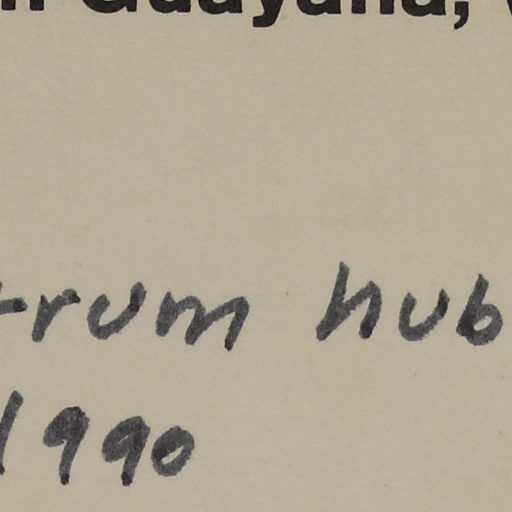 n Guayana,
trum hub
1990